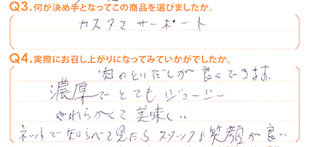 Q3.何が決め手となってこの商品を選びましたか。
カスタマーサーポート
Q4.実際にお召し上がりになってみていかがでしたか。
肉のとりだしが良くできます
濃厚でとてもジューシー
やわらかくて美味しい
ネットで知らべて見たらスタッフの笑顔が良い